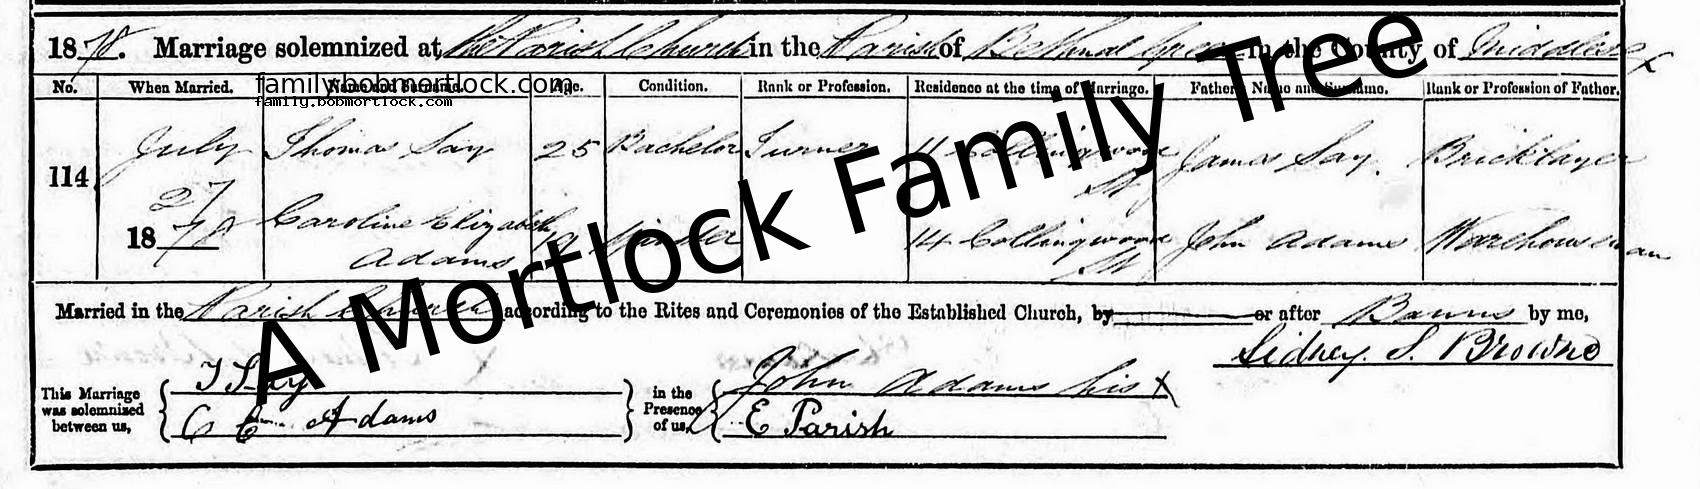 1878. Marriage solemnized at the Parish Church in the Parish of Bethnal Green in the County of Middlesex
No. When Married. Name and Surname. Age. Condition. Rank or Profession. Residence at the time of Marriage. Father's Name and Surname. Rank or Profession of Father.
familybobmortlock.com
family.bobmortlock.com
114 July 27 1878
Thomas Say 25 Bachelor Turner 11 Collingwood St James Say. Bricklayer
Caroline Elizabeth Adams 19 14 Collingwood St John Adams Warehouseman
Married in the Parish Church according to the Rites and Ceremonies of the Established Church, by or after Banns by me,
Sidney. S. Browne
This Marriage was solemnized between us,
T Say
C E Adams
in the Presence of us,
John Adams his X
E Parish
A Mortlock Family Tree